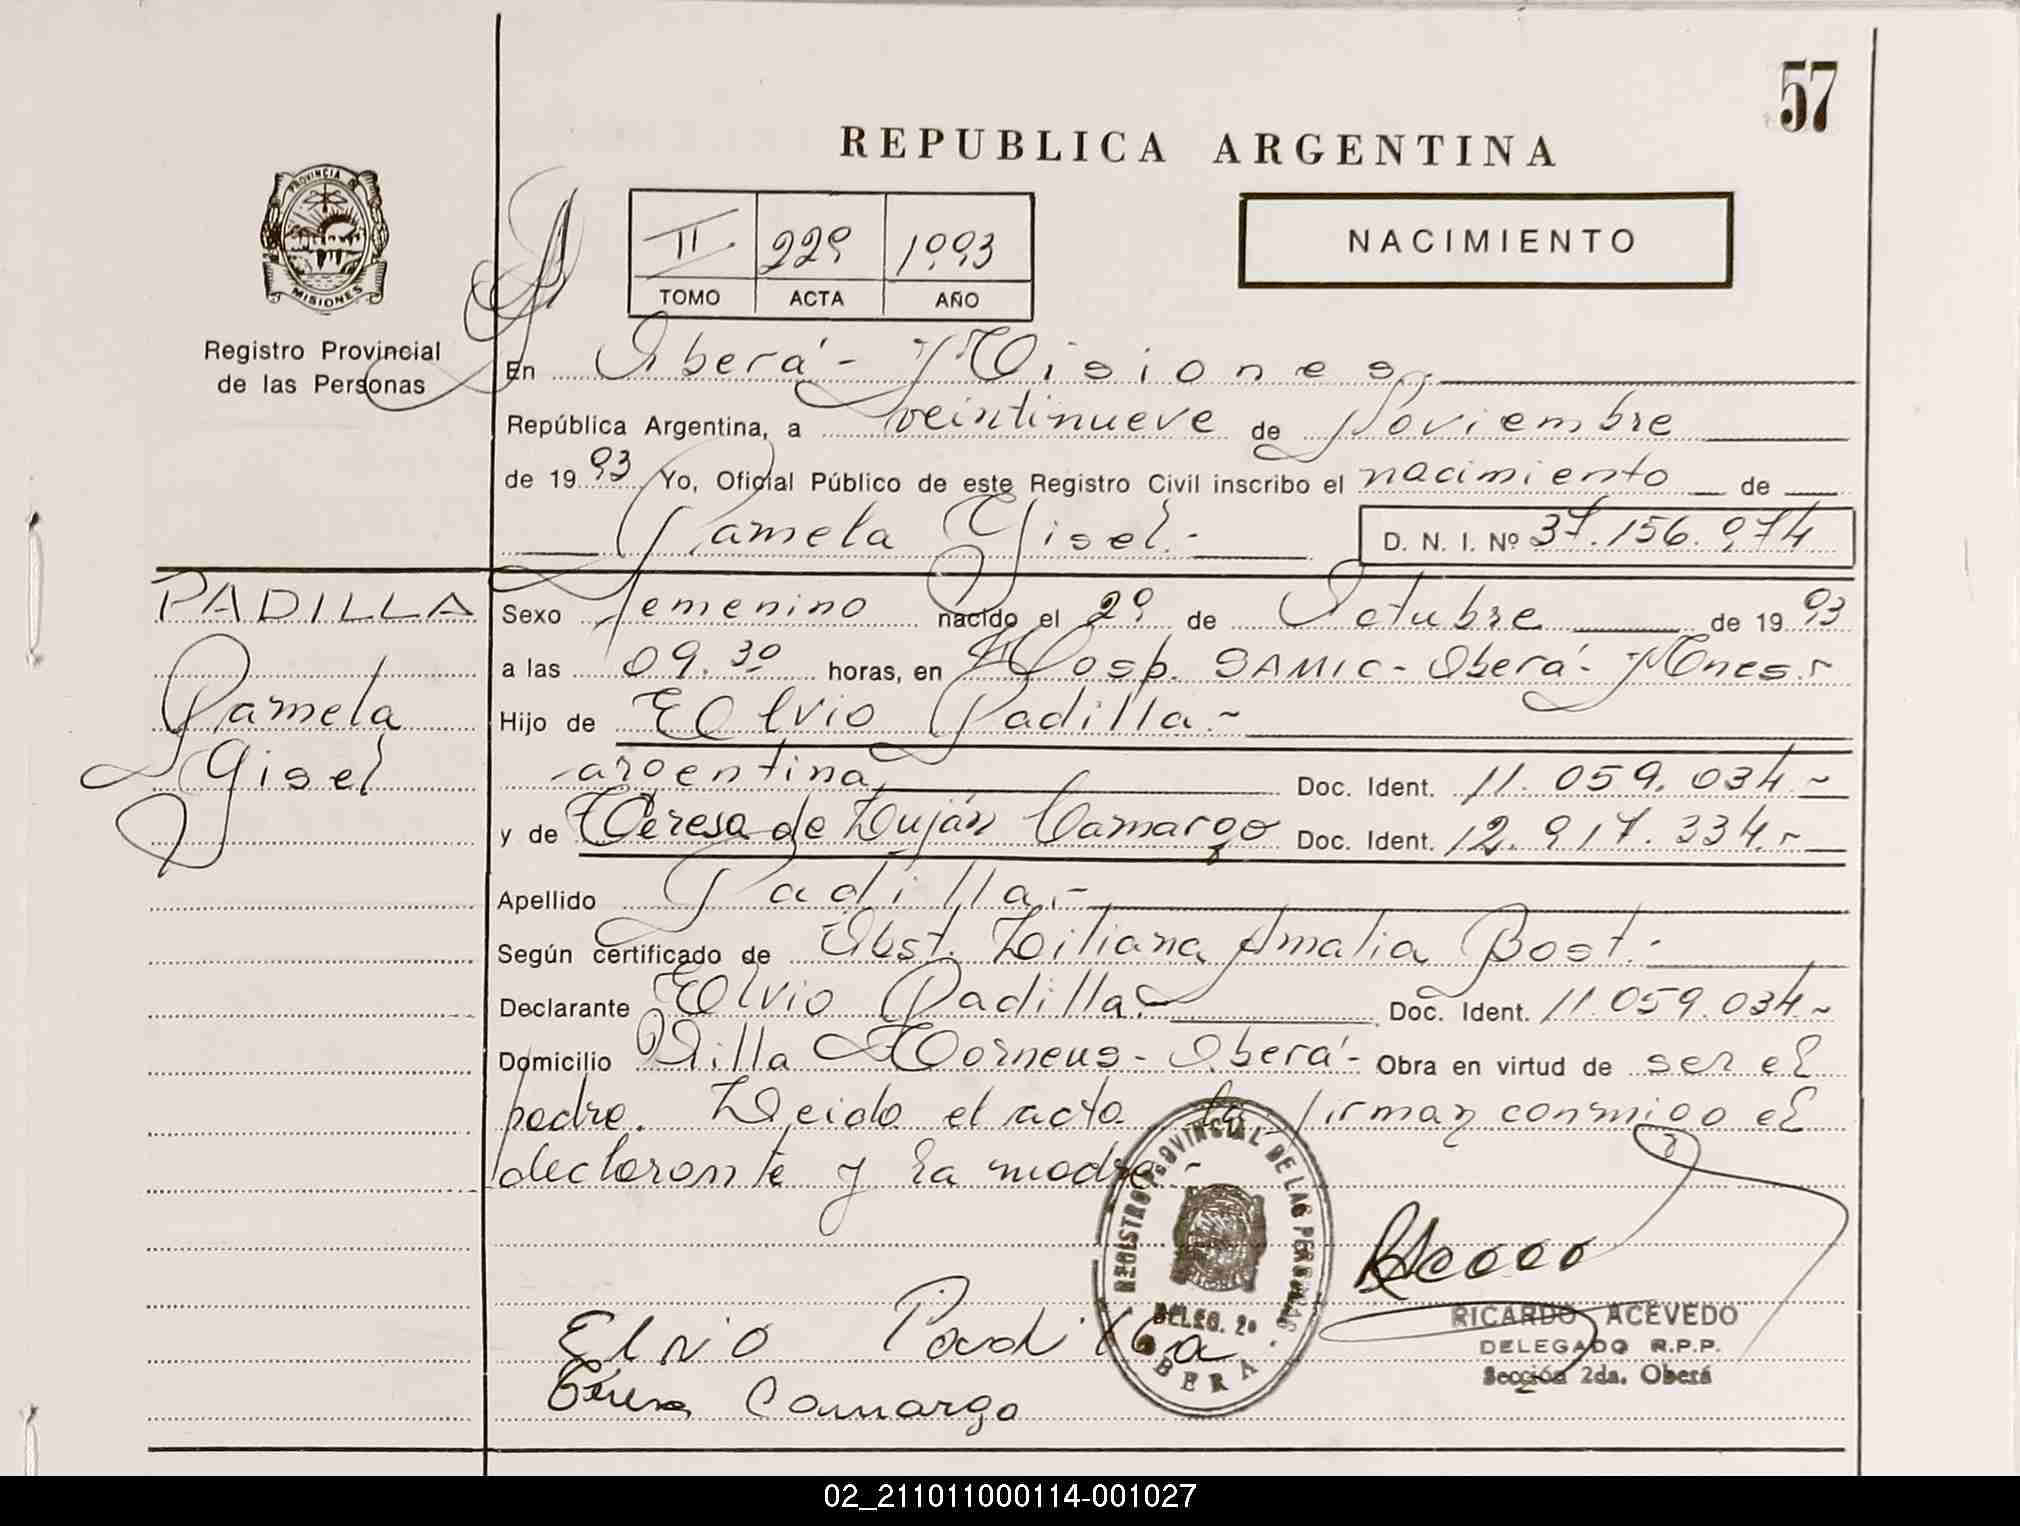 57
REPUBLICA ARGENTINA
PROVINCIA DE
MISIONES
Registro Provincial
de las Personas
II 229 1993
TOMO ACTA AÑO
NACIMIENTO
En Oberá - Misiones.
República Argentina, a veintinueve de Noviembre
de 1993 Yo, Oficial Público de este Registro Civil inscribo el nacimiento de
Pamela Gisel.-
D. N. I. Nº 37.156.974
PADILLA
Pamela
Gisel
Sexo femenino nacido el 29 de Octubre de 1993
a las 09.30 horas, en Hosp. SAMIC - Oberá - Mnes.-
Hijo de Elvio Padilla.-
argentina Doc. Ident. 11.059.034.-
y de Teresa de Luján Camargo Doc. Ident. 12.917.334.-
Apellido Padilla.-
Según certificado de Obst. Liliana Amalia Bost.-
Declarante Elvio Padilla.- Doc. Ident. 11.059.034.-
Domicilio Villa Horneus - Oberá - Obra en virtud de ser el
padre. Leida el acta la firman conmigo el
declarante y la madre.-
REGISTRO PROVINCIAL DE LAS PERSONAS
DELEG. 2a
OBERA
RICARDO ACEVEDO
DELEGADO R.P.P.
Sección 2da. Oberá
Elvio Padilla
Teresa Camargo
02_211011000114-001027